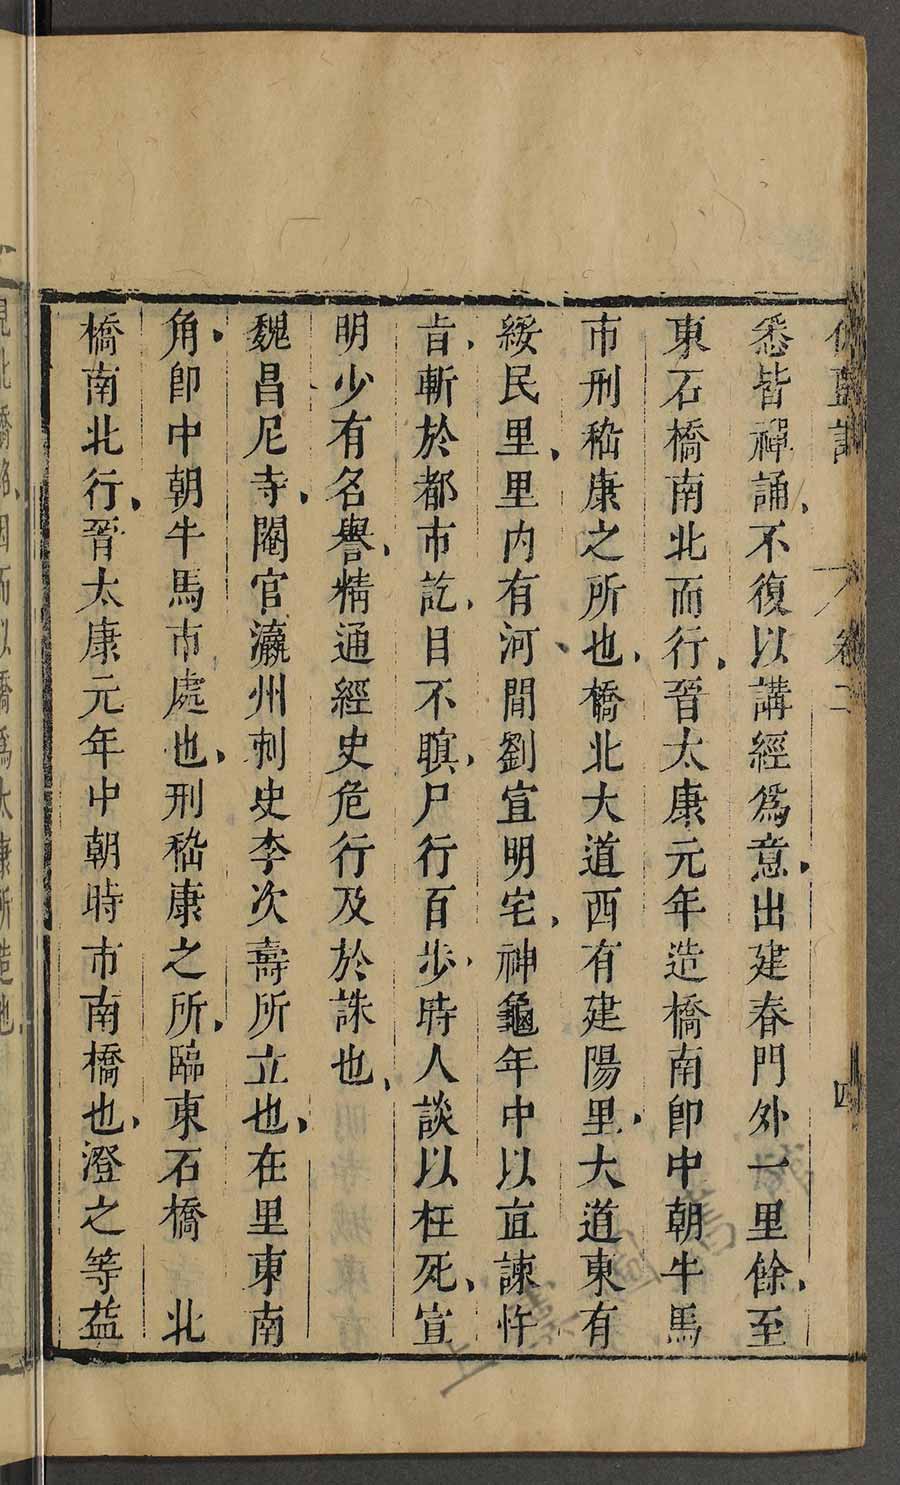 伽藍記 卷二 四
悉皆禪誦、不復以講經爲意、出建春門外一里餘、至
東石橋南北而行、晉太康元年造橋南卽中朝牛馬
市刑嵇康之所也、橋北大道西有建陽里、大道東有
綏民里、里内有河間劉宣明宅、神龜年中以直諫忤
㫖、斬於都市訖、目不瞑、尸行百步、時人談以枉死、宣
明少有名譽、精通經史危行及於誅也、
魏昌尼寺、閹官瀛州刺史李次壽所立也、在里東南
角、卽中朝牛馬市處也、刑嵇康之所、臨東石橋 北
橋南北行、晉太康元年中朝時市南橋也、澄之等葢
見北橋銘、因而以橋爲太康所造也